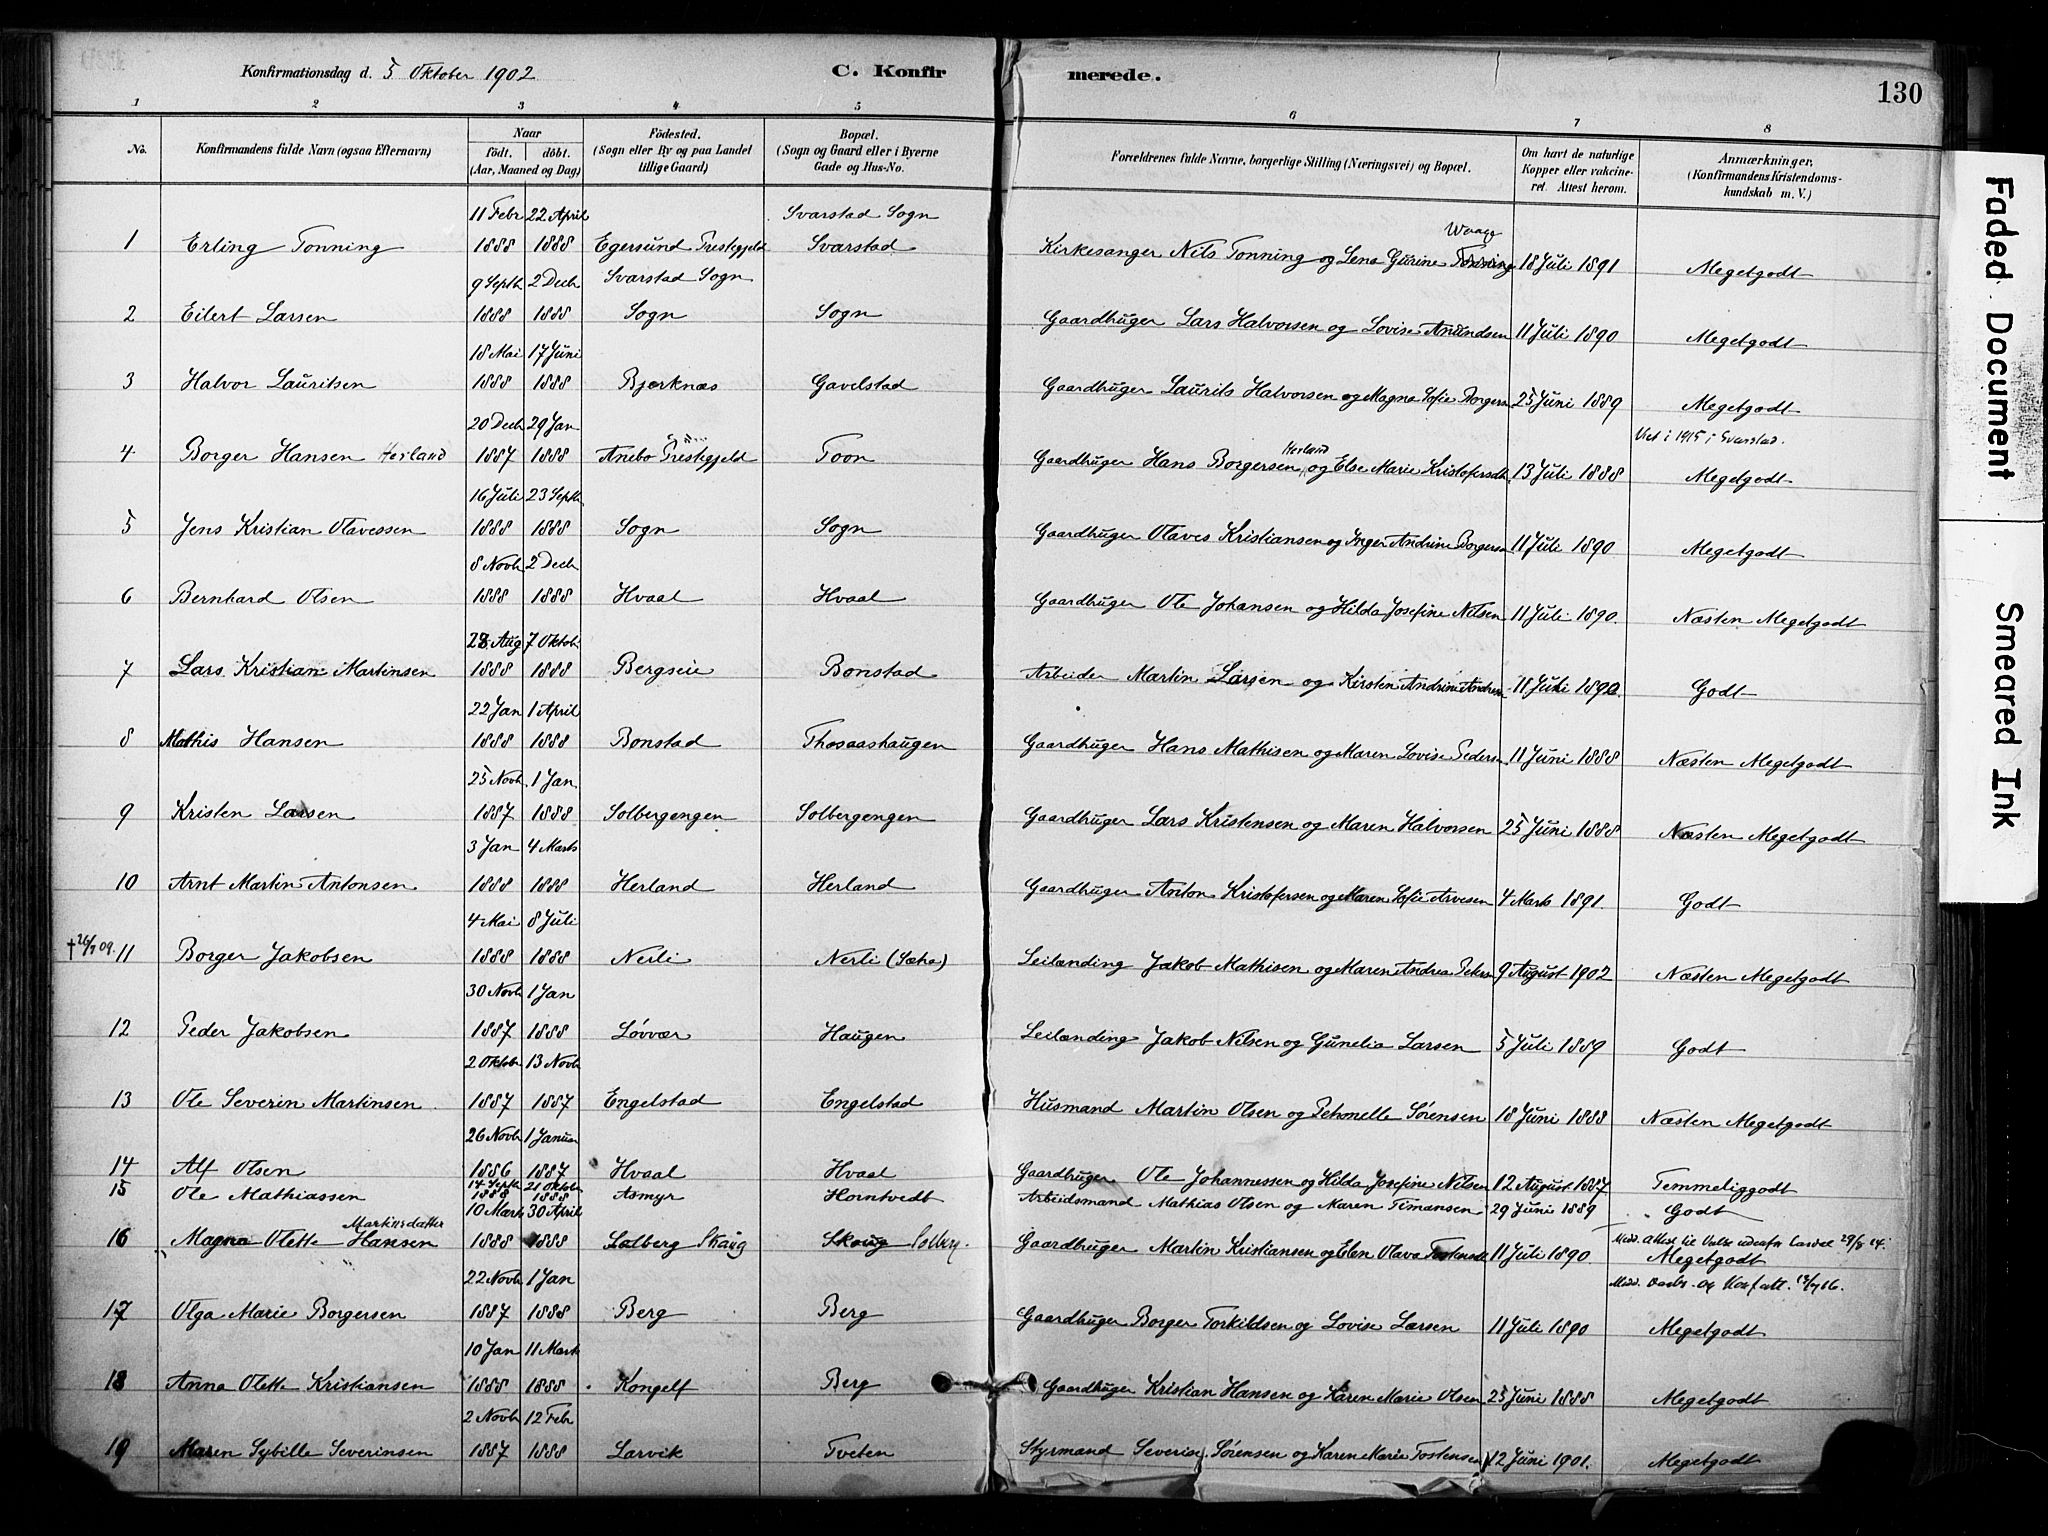 Konfirmationsdag d. 5 Oktober 1902 C. Konfirmerede. 130
1 2 3 4 5 6 7 8
No. Konfirmandens fulde Navn (ogsaa Efternavn) Naar födt. döbt. (Aar, Maaned og Dag) Födested. (Sogn eller By og paa Landet tillige Gaard) Bopæl. (Sogn og Gaard eller i Byerne Gade og Hus-No. Forældrenes fulde Navne, borgerlige Stilling (Næringsvei) og Bopæl. Om havt de naturlige Kopper eller vakcineret. Attest herom. Anmærkninger, (Konfirmandens Kristendomskundskab m. V.)
11 Febr 22 April Svarstad Sogn Waage
1 Erling Tonning 1888 1888 Egersund Prestegjeld Svarstad Kirkesanger Nils Tonning og Lena Gurine Tonning 18 Juli 1891 Megetgodt
9 Septb 2 Decb Svarstad Sogn
2 Eilert Larsen 1888 1888 Sogn Sogn Gaardbruger Lars Halvorsen og Lovise Amundsen 11 Juli 1890 Megetgodt
18 Mai 17 Juni
3 Halvor Lauritsen 1888 1888 Bjerknæs Gavelstad Gaardbruger Laurits Halvorsen og Magna Sofie Borgersn 25 Juni 1889 Megetgodt
20 Decb 29 Jan i 1915 i Svarstad.
4 Borger Hansen Herland 1887 1888 Anebo Prestegjeld Toon Gaardbruger Hans Borgersen Herland og Else Marie Kristofersdtr 13 Juli 1888 Megetgodt
16 Juli 23 Septb
5 Jens Kristian Olavessen 1888 1888 Sogn Sogn Gaardbruger Olaves Kristiansen og Inger Andrine Borgersn 11 Juli 1890 Megetgodt
8 Novb 2 Decb
6 Bernhard Olsen 1888 1888 Hvaal Hvaal Gaardbruger Ole Johansen og Hilda Josefine Nilsen 11 Juli 1890. Næsten Megetgodt
28 Aug 7 Oktob
7 Lars Kristian Martinsen 1888 1888 Bergseie Bonstad Arbeider Martin Larsen og Kirsten Andrine Andersn 11 Juli 1890 Godt
22 Jan 1 April
8 Mathis Hansen 1888 1888 Bonstad Thosaashaugen Gaardbruger Hans Mathisen og Maren Lovise Pedersn 11 Juni 1888 Næsten Megetgodt
25 Novb 1 Jan
9 Kristen Larsen 1887 1888 Solbergengen Solbergengen Gaardbruger Lars Kristensen og Maren Halvorsen 25 Juni 1888 Næsten Megetgodt
3 Jan 4 Marts
10 Arnt Martin Antonsen 1888 1888 Herland Herland Gaardbruger Anton Kristofersen og Maren Sofie Arvesen 4 Marts 1891. Godt
4 Mai 8 Juli
† 26/7 09. 11 Borger Jakobsen 1888 1888 Nerli Nerli (Sæha) Leilænding Jakob Mathisen og Maren Andrea Pedersn 9 August 1902 Næsten Megetgodt
30 Novb 1 Jan
12 Peder Jakobsen 1887 1888 Lovvær Haugen Leilænding Jakob Nilsen og Gunelia Larsen 5 Juli 1889 Godt
2 Oktobr 13 Novb
13 Ole Severin Martinsen 1887 1887 Engelstad Engelstad Husmand Martin Olsen og Pehonelle Sörensen 18 Juni 1888 Næsten Megetgodt
26 Novb 1 Januar
14 Alf Olsen 1886 1887 Hvaal Hvaal Gaardbruger Ole Johannessen og Hilda Josefine Nilsen 12 August 1887 Temmeliggodt
14 Septb 21 Oktobr
15 Ole Mathiassen 1888 1888 Asmyr Horntvedt Arbeidsmand Mathias Olsen og Maren Timansen 29 Juni 1889 Godt
10 Marts 30 April Martinsdatter
16 Magna Olette Hansen 1888 1888 Solberg Skaug Skaug Solberg. Gaardbruger Martin Kristiansen og Elen Olava Tostensdtr 11 Juli 1890. Medd. attest til 29/8 24. Megetgodt
22 Novb 1 Jan Medd. 16.
17 Olga Marie Borgersen 1887 1888 Berg Berg Gaardbruger Borger Torkildsen og Lovise Larsen 11 Juli 1890 Megetgodt
10 Jan 11 Marts
18 Anna Olette Kristiansen 1888 1888 Kongelf Berg Gaardbruger Kristian Hansen og Karen Marie Olsen 25 Juni 1888 Megetgodt
2 Novb 12 Febr
19 Maren Sybille Severinsen 1887 1888 Larvik Tveten Styrmand Severin Sörensen og Karen Marie Tostensen 12 Juni 1901. Megetgodt
Faded Document
Smeared Ink